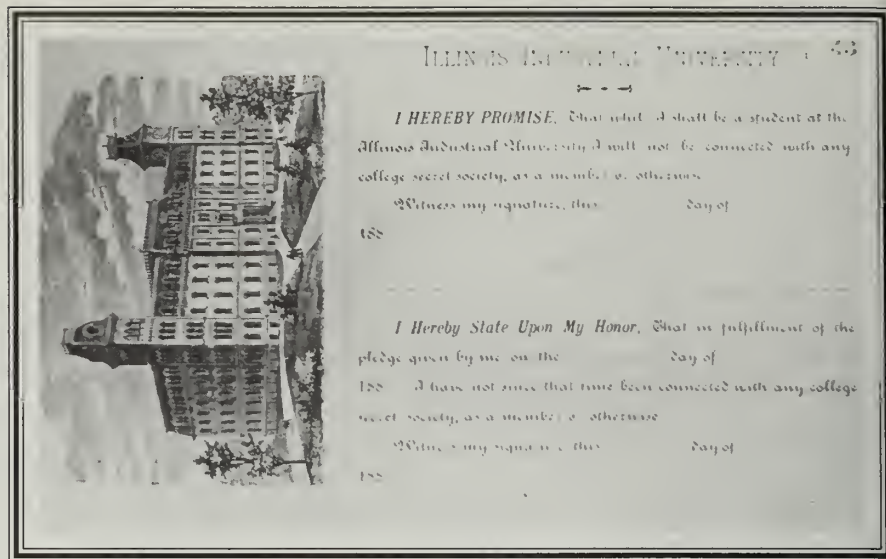 ILLINOIS INDUSTRIAL UNIVERSITY
I HEREBY PROMISE, That while I shall be a student at the
Illinois Industrial University I will not be connected with any
college secret society, as a member or otherwise
Witness my signature, this day of
188
I Hereby State Upon My Honor, That in fulfillment of the
pledge given by me on the day of
188 I have not since that time been connected with any college
secret society, as a member or otherwise
Witness my signature this day of
188